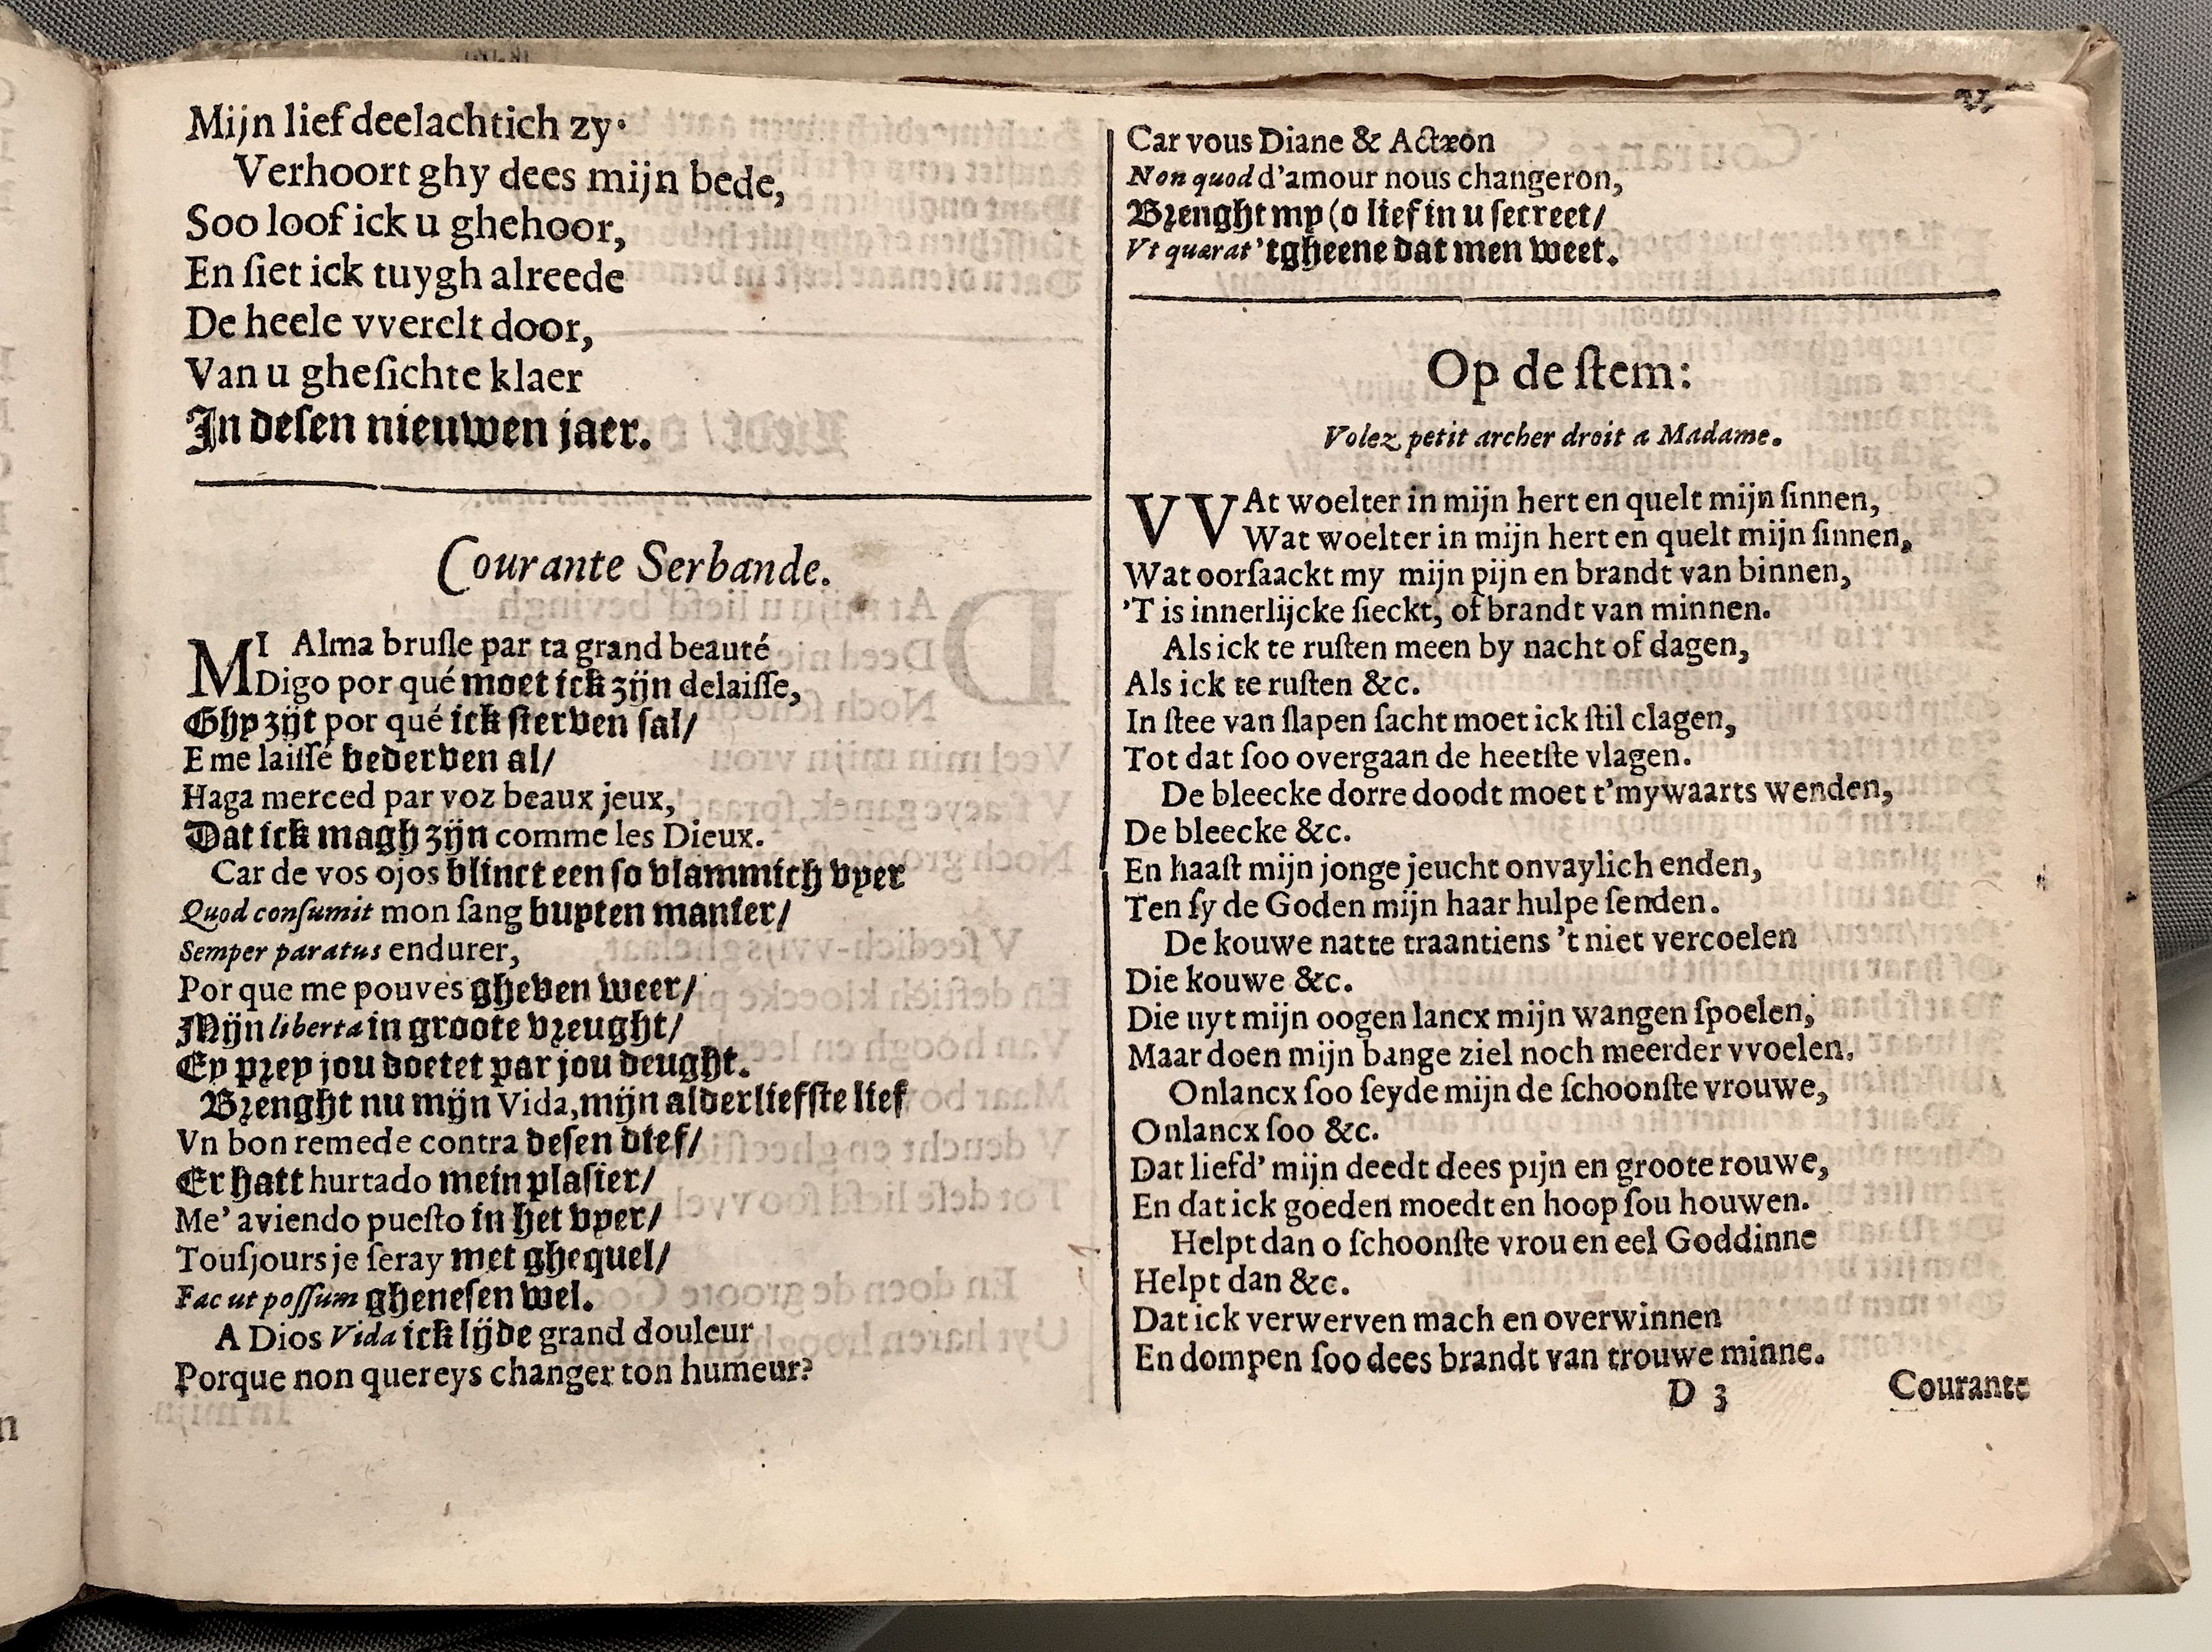 Mijn lief deelachtich zy·
Verhoort ghy dees mijn bede,
Soo loof ick u ghehoor,
En ſiet ick tuygh alreede
De heele vverelt door,
Van u gheſichte klaer
In deſen nieuwen jaer.
Courante Serbande.
MI Alma bruſle par ta grand beauté
Digo por qué moet ick zijn delaiſſe,
Ghy zijt por qué ick ſterven ſal/
E me laiſſé bederven al/
Haga merced par voz beaux jeux,
Dat ick magh zijn comme les Dieux.
Car de vos ojos blinct een ſo vlammich vyer
Quod conſumit mon ſang buyten manier/
Semper paratus endurer,
Por que me pouvés gheven weer/
Mijn liberta in groote vꝛeught/
Ey pꝛey jou doetet par jou deught.
Bꝛenght nu mijn Vida, mijn alderliefſte lief
Vn bon remede contra deſen dief/
Er hatt hurtado mein plaſier/
Me' aviendo pueſto in het vyer/
Touſjours je ſeray met ghequel/
Fac ut poſſum gheneſen wel.
A Dios Vida ick lijde grand douleur
Porque non quereys changer ton humeur?
Car vous Diane & Actæon
Non quod d'amour nous changeron,
Bꝛenght my (o lief in u ſecreet/
Vt quærat 'tgheene dat men weet.
Op de ſtem:
Volez petit archer droit a Madame.
VVAt woelter in mijn hert en quelt mijn ſinnen,
Wat woelter in mijn hert en quelt mijn ſinnen,
Wat oorſaackt my mijn pijn en brandt van binnen,
'T is innerlijcke ſieckt, of brandt van minnen.
Als ick te ruſten meen by nacht of dagen,
Als ick te ruſten &c.
In ſtee van ſlapen ſacht moet ick ſtil clagen,
Tot dat ſoo overgaan de heetſte vlagen.
De bleecke dorre doodt moet t'mywaarts wenden,
De bleecke &c.
En haaſt mijn jonge jeucht onvaylich enden,
Ten ſy de Goden mijn haar hulpe ſenden.
De kouwe natte traantiens 't niet vercoelen
Die kouwe &c.
Die uyt mijn oogen lancx mijn wangen ſpoelen,
Maar doen mijn bange ziel noch meerder vvoelen.
Onlancx ſoo ſeyde mijn de ſchoonſte vrouwe,
Onlancx ſoo &c.
Dat liefd' mijn deedt dees pijn en groote rouwe,
En dat ick goeden moedt en hoop ſou houwen.
Helpt dan o ſchoonſte vrou en eel Goddinne
Helpt dan &c.
Dat ick verwerven mach en overwinnen
En dompen ſoo dees brandt van trouwe minne.
D 3 Courante